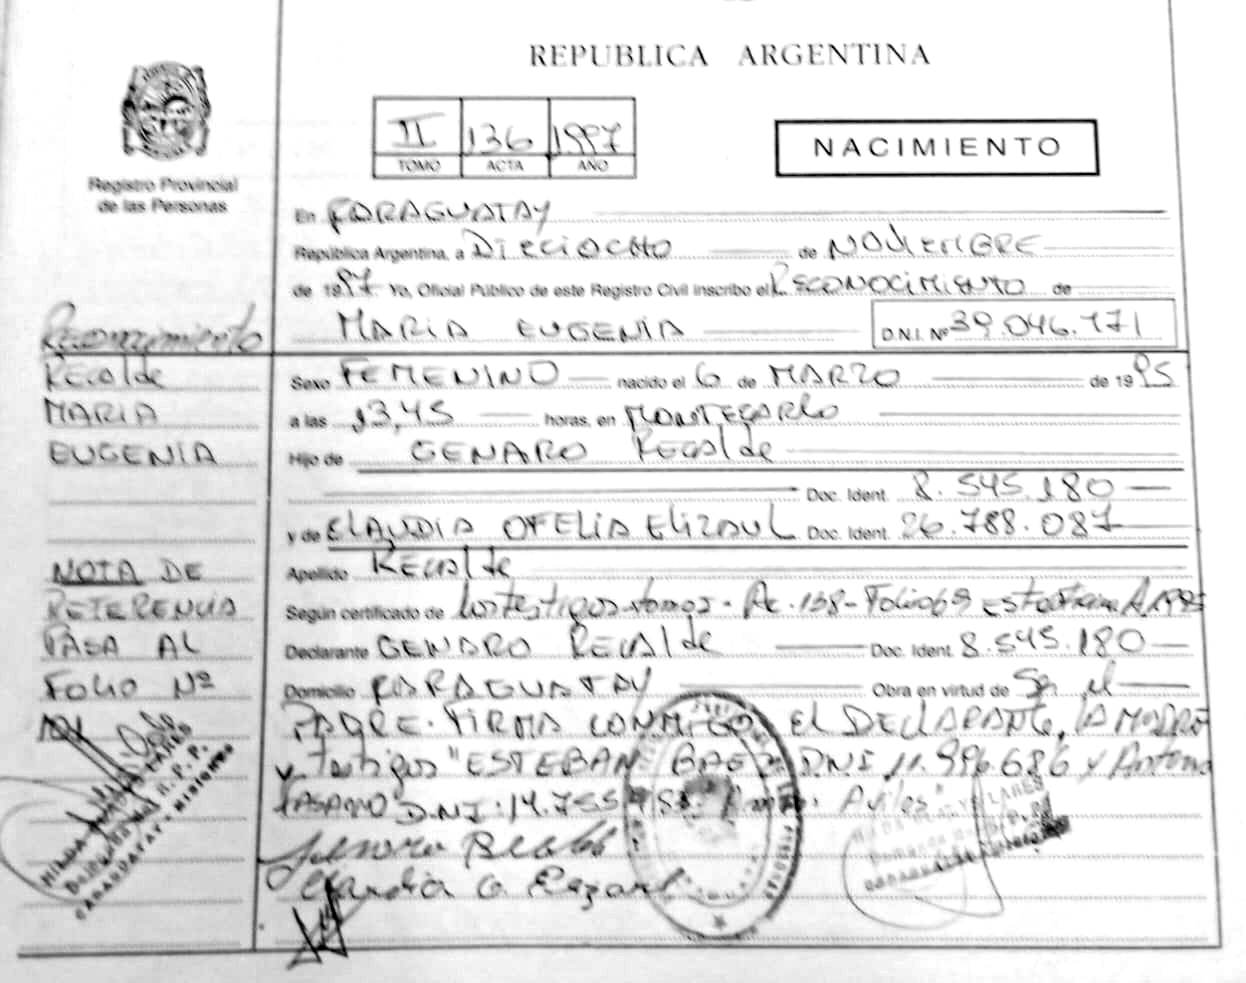 REPUBLICA ARGENTINA
II 136 1997
TOMO ACTA AÑO
NACIMIENTO
Registro Provincial
de las Personas
En CARAGUATAY
República Argentina, a Dieciocho de NOViEMBRE
de 1997 Yo, Oficial Público de este Registro Civil inscribo el RECONOCIMIENTO de
MARIA EUGENIA D.N.I. Nº 39.046.171
Reconocimiento
Recalde
MARIA
EUGENIA
Sexo FEMENINO nacido el 6 de MARZO de 1995
a las 13,45 horas, en MONTECARLO
Hijo de GENARO Recalde
Doc. Ident. 8.545.180
y de CLAUDIA OFELIA Doc. Ident. 26.788.087
Apellido Recalde
NOTA DE
REFERENCIA
PASA AL
FOLIO Nº
Según certificado de testigos tomo 2 - Ac. 138 - Folio 69
Declarante GENARO RECALde Doc. Ident. 8.545.180
Domicilio CARAGUATAY Obra en virtud de Ser el
PADRE. FIRMA CONMIGO El DECLARANTE, LA MADRE
y Testigos "ESTEBAN BAEZ DNI 11.996.686 y Antonio
D.N.I: 14.755
HILDA
Delegada del R.P.P.
CARAGUATAY - MISIONES